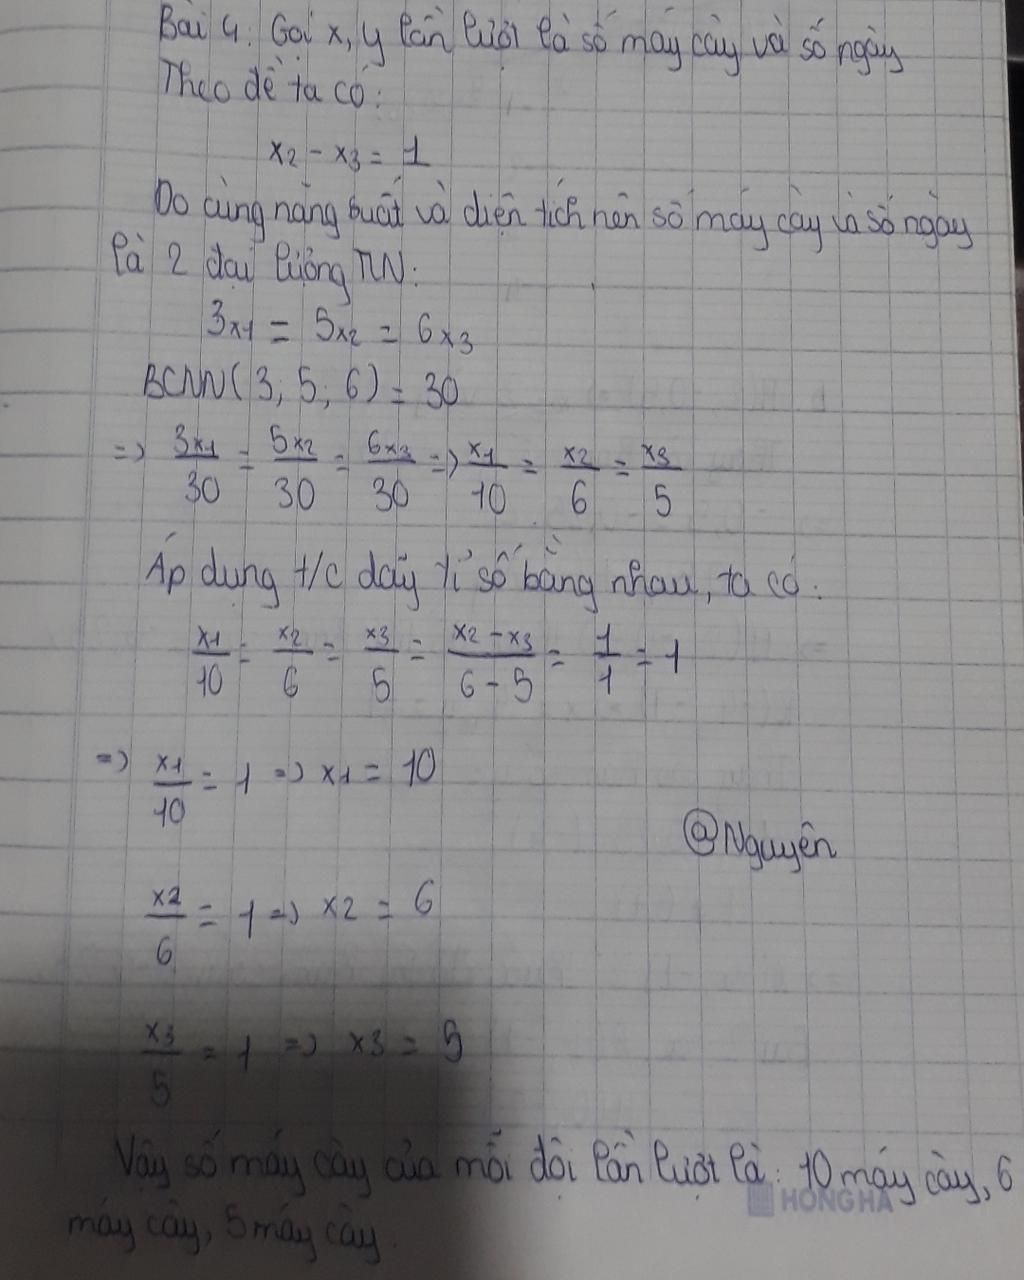 Bài 4. Gọi x, y lần lượt là số máy cày và số ngày
Theo đề ta có:
x2 - x3 = 1
Do cùng năng suất và diện tích nên số máy cày và số ngày
là 2 đại lượng TLN:
3x1 = 5x2 = 6x3
BCNN(3; 5; 6) = 30
=> 3x1/30 = 5x2/30 = 6x3/30 => x1/10 = x2/6 = x3/5
Áp dụng t/c dãy tỉ số bằng nhau, ta có:
x1/10 = x2/6 = x3/5 = x2 - x3/6 - 5 = 1/1 = 1
=> x1/10 = 1 => x1 = 10
@Nguyên
x2/6 = 1 => x2 = 6
x3/5 = 1 => x3 = 5
Vậy số máy cày của mỗi đội lần lượt là: 10 máy cày, 6
HONG HA
máy cày, 5 máy cày.